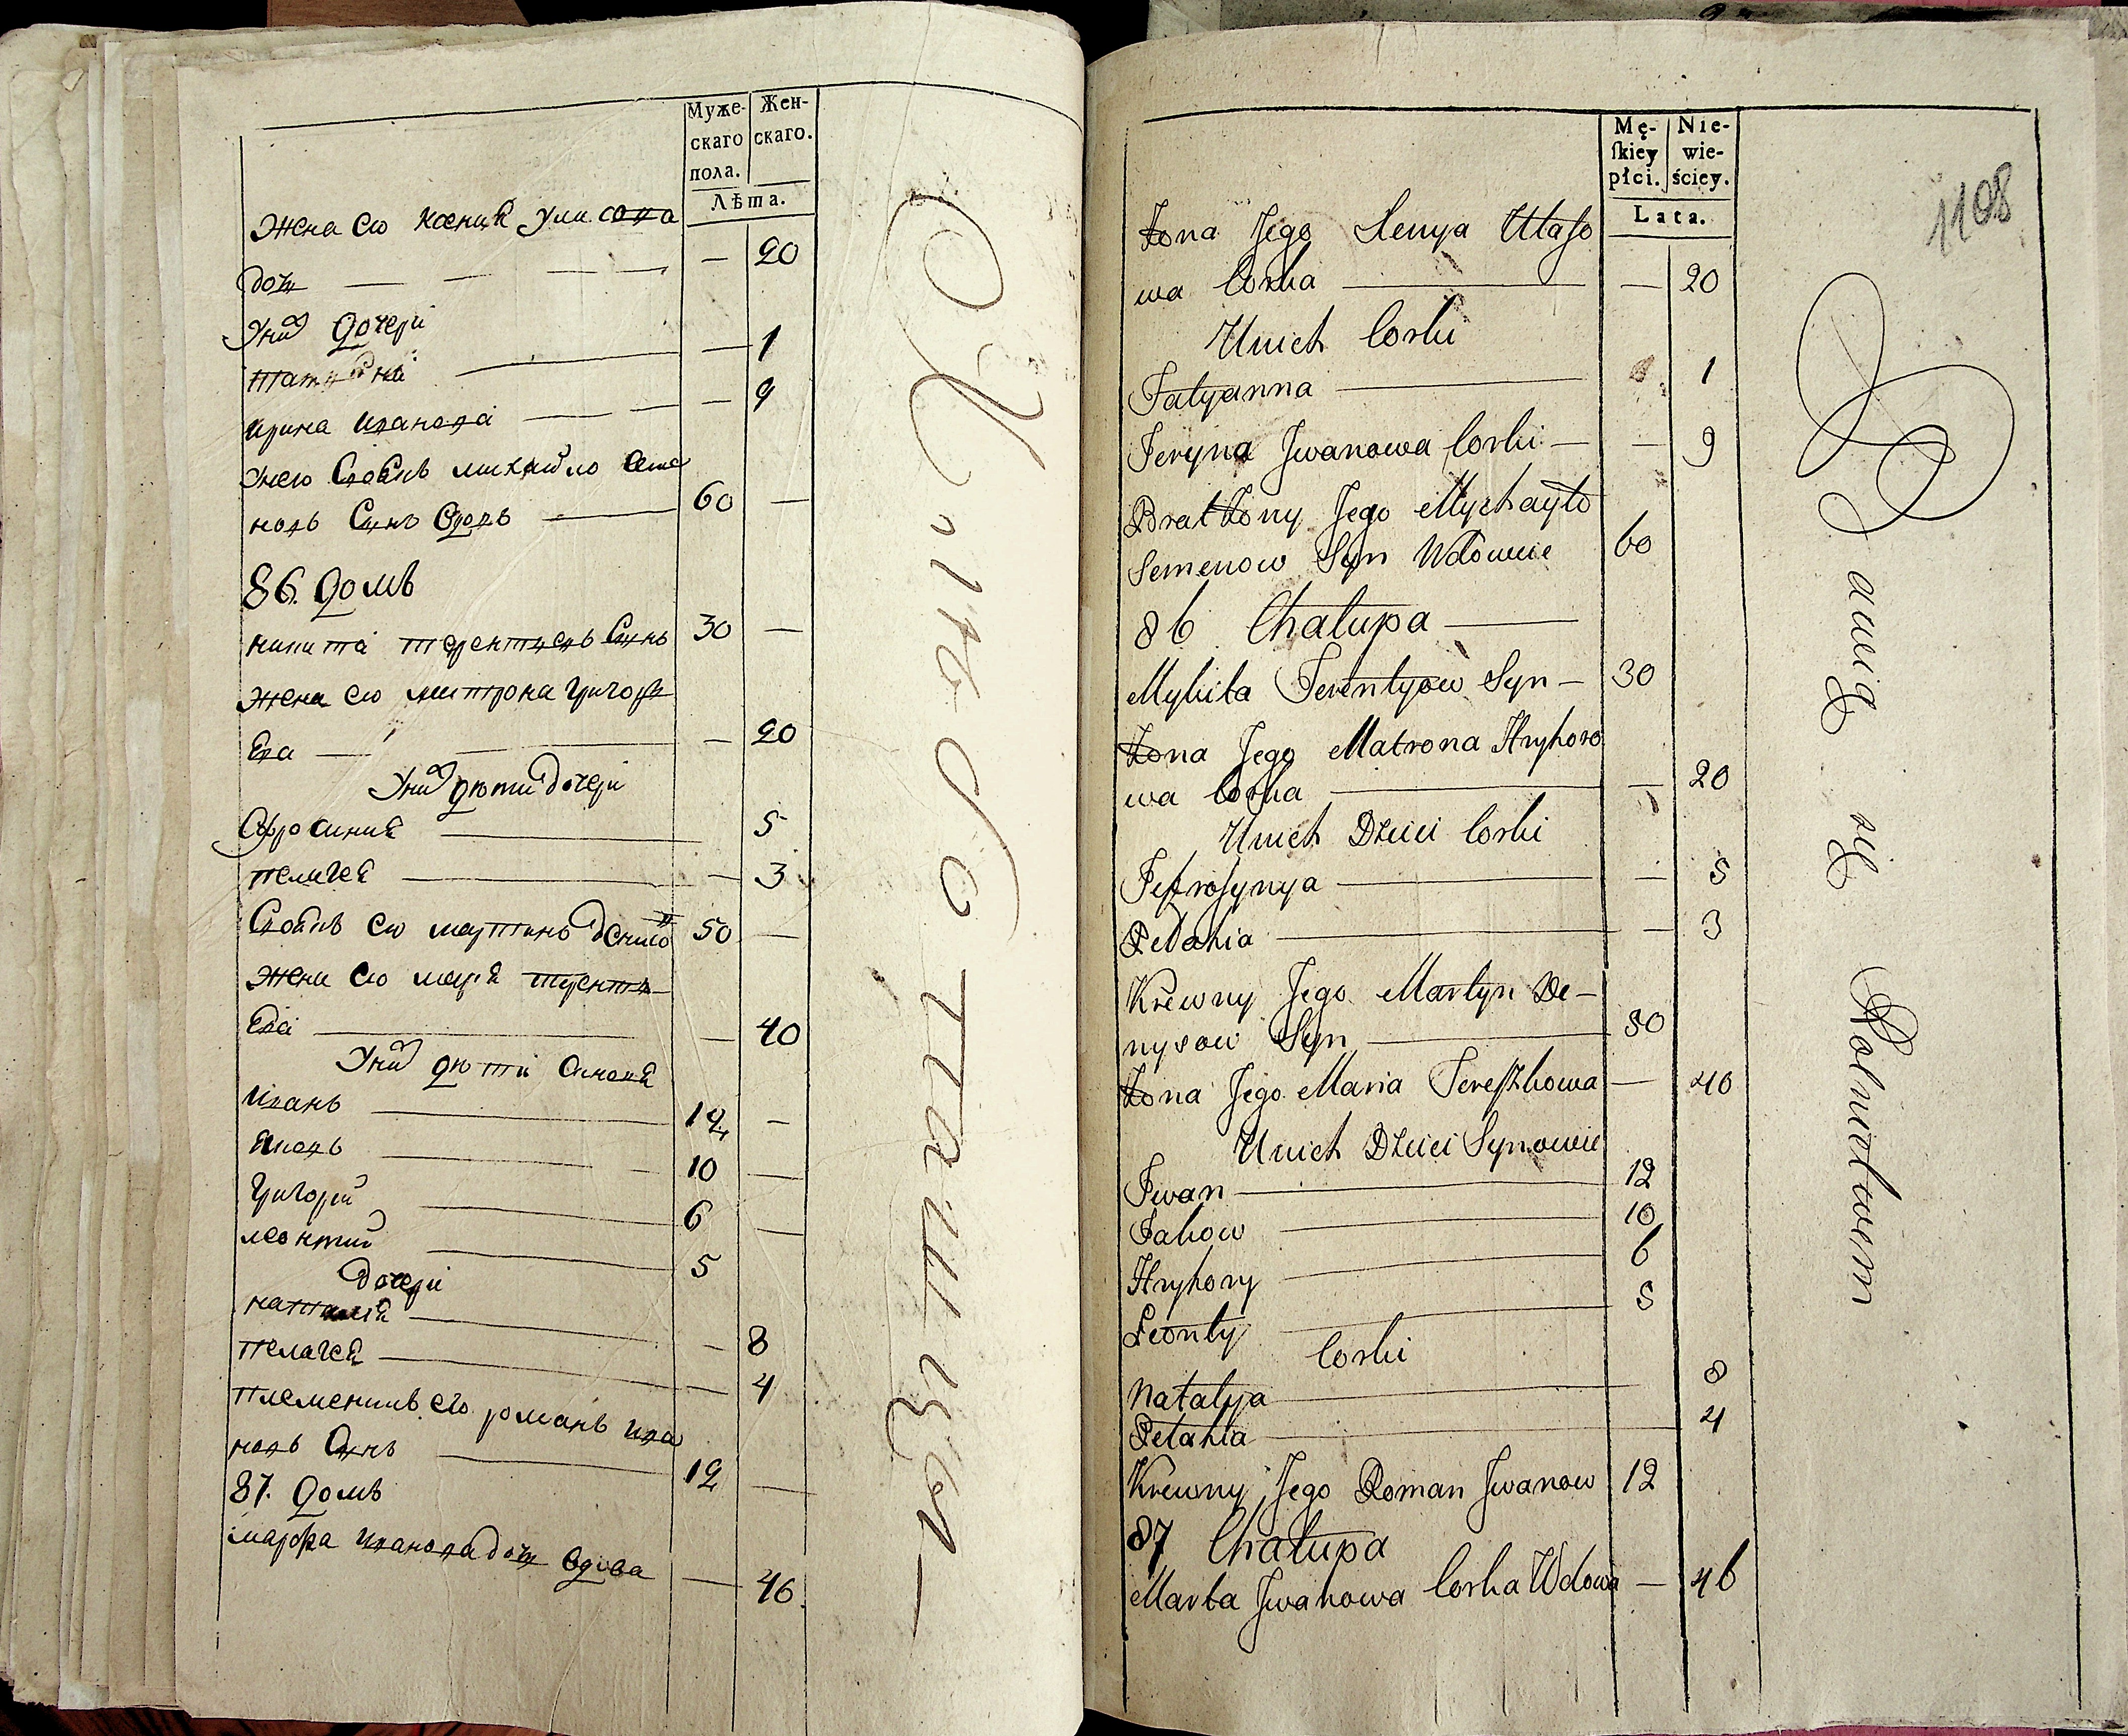 Муже-
скаго
пола.
Жен-
скаго.
Лѣта.
Жена ею
дочь — — — — — 20
Унихъ дочери
татияна — — 1
ирина иванова — — 9
унею михайло Семе
новъ Синъ 60 —
86. домъ
никита терентиевъ Синъ 30 —
жена ею митрона григори
Ева — — — 20
Унихъ дети дочери
Офросиния — 5
пелагея — — 3
ею мартинъ 50 —
жена ею мария
Ева — — 40
Унихъ дети Синове
иванъ — 12 —
Яковъ — 10 —
григорий — 6 —
леонтий — 5
дочери
наталия — — 8
пелагея — — 4
племеникъ его романъ ива
новъ Синъ — 12 —
87. домъ
марфа иванова дочь вдова — 46.
Mę-
skiey
płci.
Nie-
wie-
ściey.
Lata.
1108
Żona Jego Xenya Ułaso
wa Corka — — 20
Unich Corki
Tatyanna — 1
Jeryna Jwanowa Corki — — 9
Brat Żony Jego Mychayło
Semenow Syn Wdowiec 60
86 Chałupa —
Mykita Terentyow Syn — 30
Żona Jego Matrona Hryhoro
wa Corka — — 20
Unich Dzieci Corki
Jefrosynya — — 5
Pelahia — — 3
Krewny Jego Martyn De-
nysow Syn — 50
Żona Jego Maria Tereszkowa — 40
Unich Dzieci Synowie
Jwan — 12
Jakow — 10
Hryhory — 6
Leonty — 5
Corki
Natalya — 8
Pelahia — 4
Krewny Jego Roman Jwanow 12
87 Chałupa
Marta Jwanowa Corka Wdowa — 46
Rolnictwem